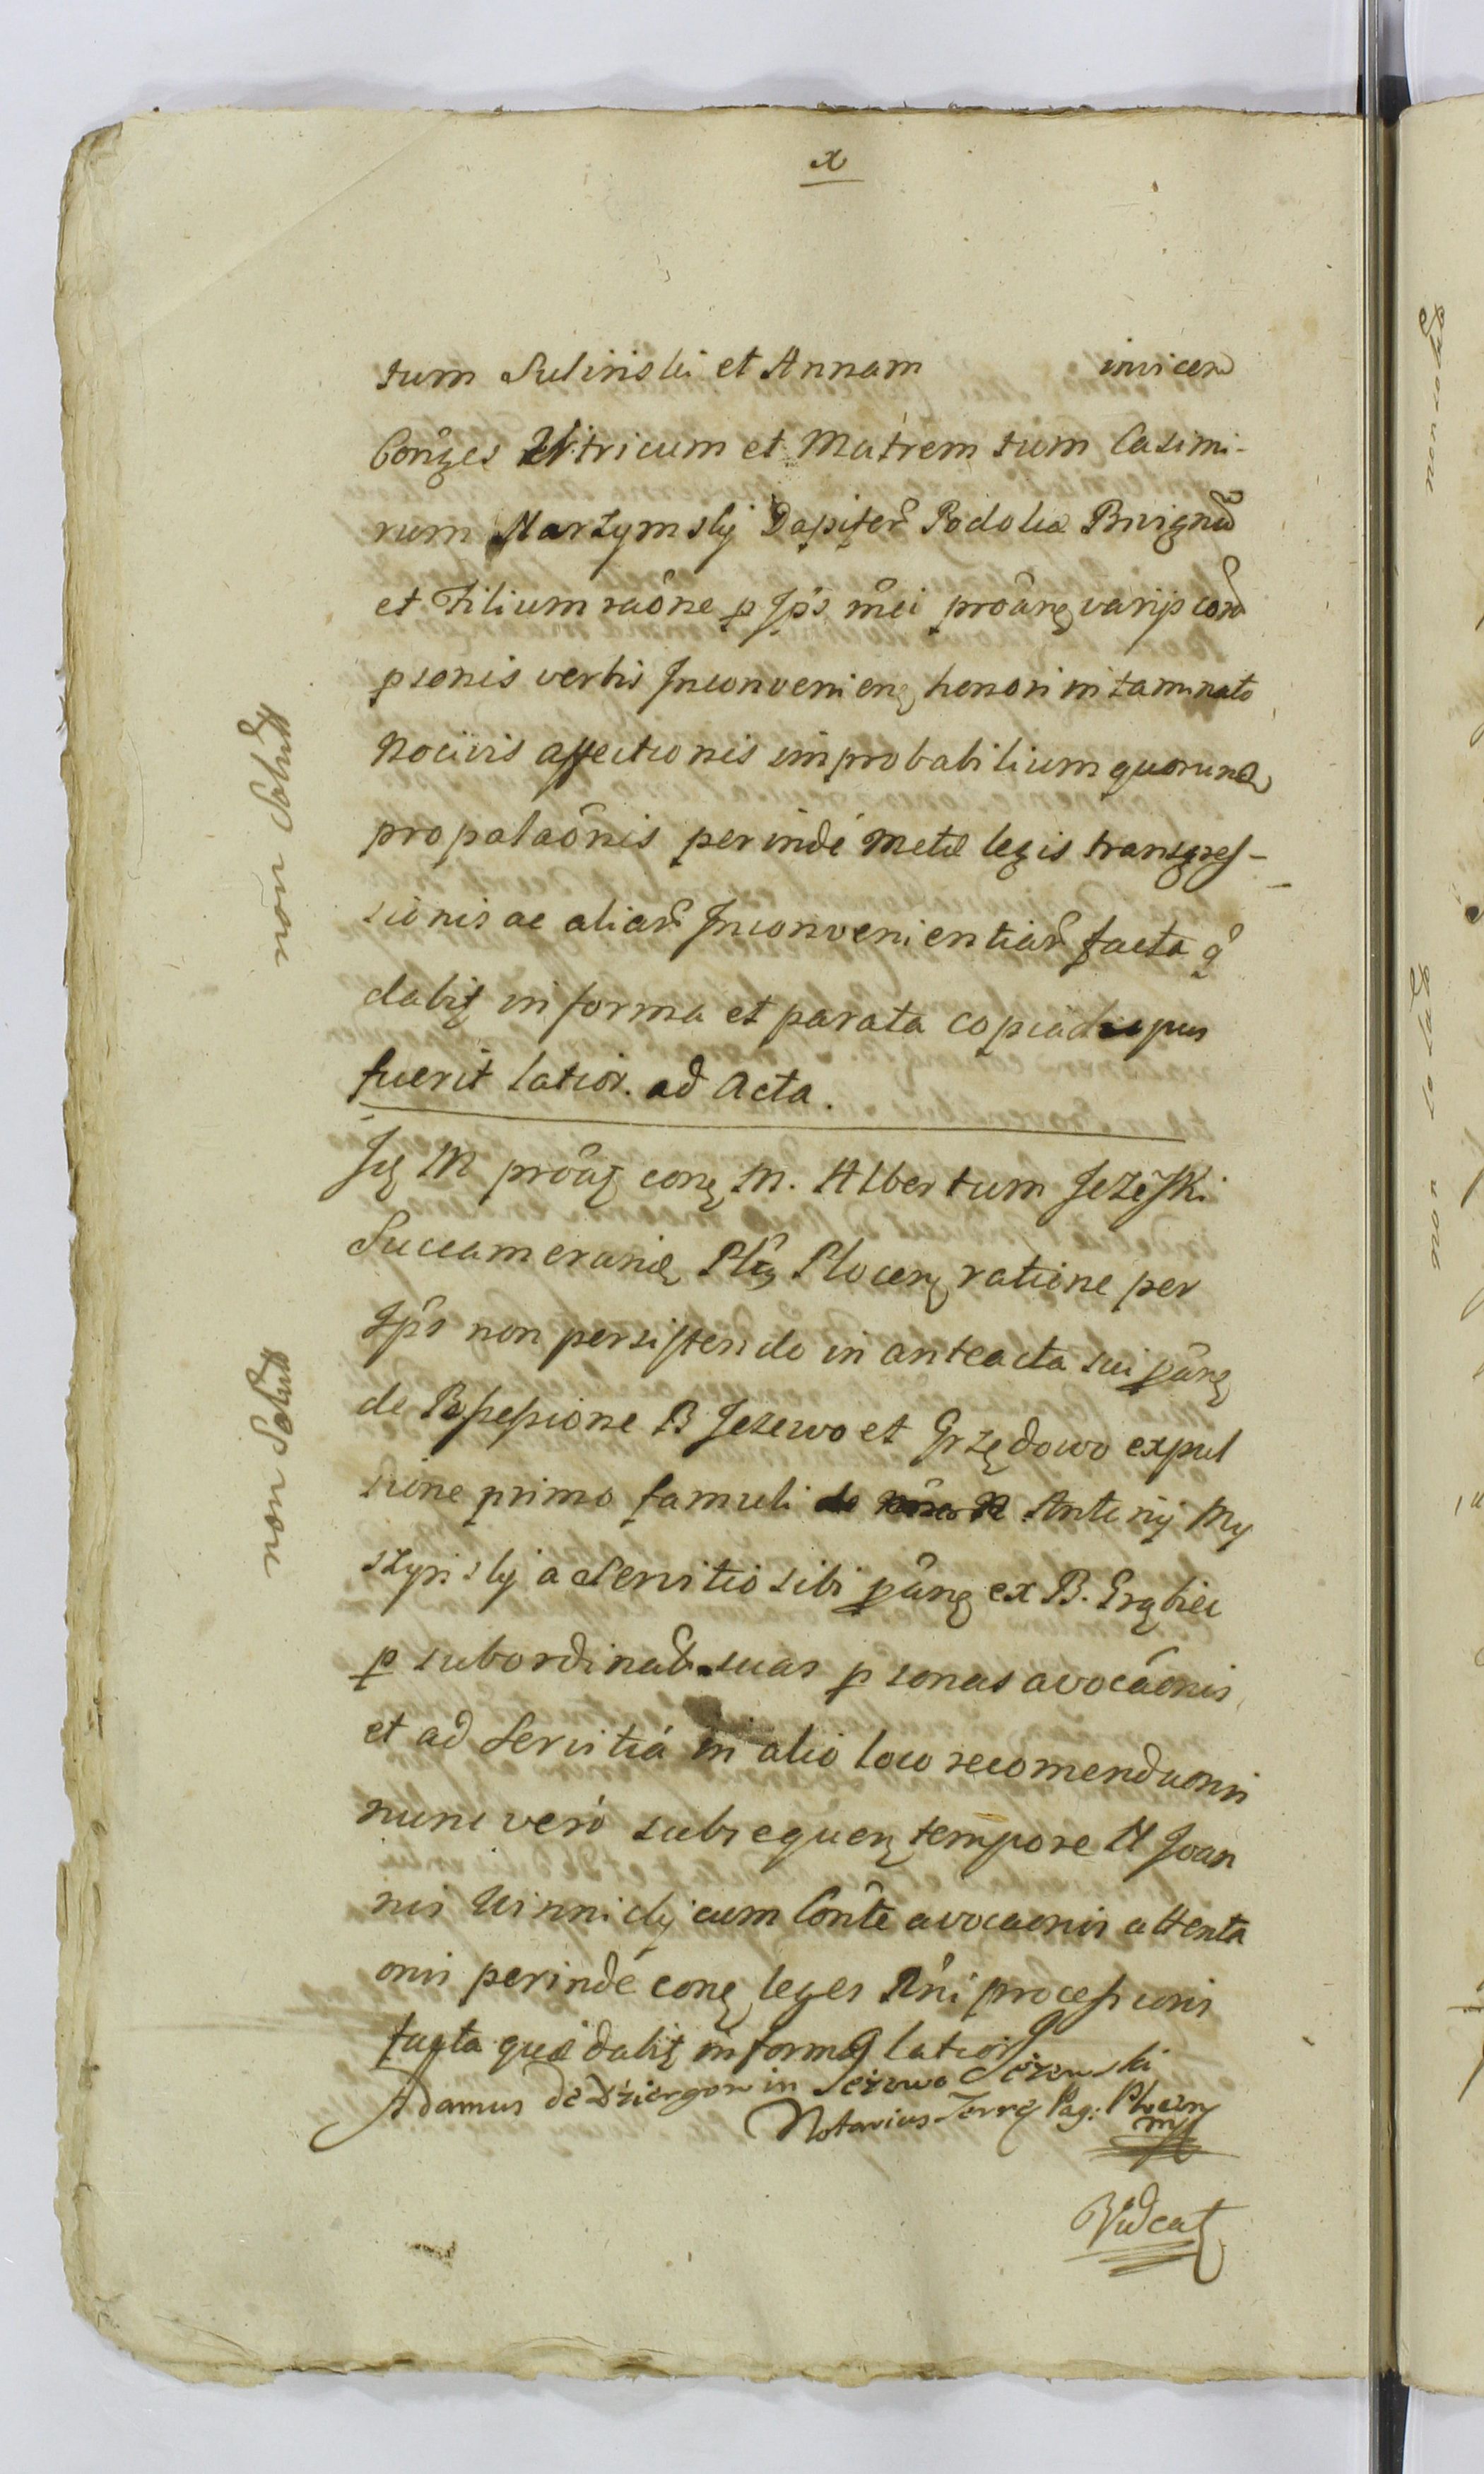 x
tum Sulinski et Annam invicem
Conges Vitricum et Matrem tum Casimi-
rum Narzymskj Dapifer Podoliæ Privignũ
et Filium raône p Jp̂s m̂ei prôang varijs coră
psonis verbis Inconvenieng honori intaminato
Nocivis affectionis improbabilium quorund
propalaônis perinde Metæ legis transgres-
sionis ac aliar Inconvenientiar facta q
dabit in forma et parata copia dũ opus
fuerit latior. ad Acta.
non Solut
Id M prôag cong M. Albertum Jezeski
Succamerarid Pltg Ploceng ratione per
Jp̂s non persistendo in anteacta sui pâng
de Possessione B Jezewo et Grzędowo expul
sione primo famuli Antonij My
szynskj a Servitio sibi pâng ex B.
p subordinat suas psonas avocâonis
et ad Servitia in alio loco recomendaonis
nunc vero subsequeng tempore N Joan
nis Winnickj cum Côn̂te avocaonis attenta
onis perinde cong leges Rn̂i processionis
facta quæ dabit in forma latiori
non Solut
Adamus de Dziergow in Jeżewo Jeżewski
Notarius Terrg Pag: Plocen
mp
Videat